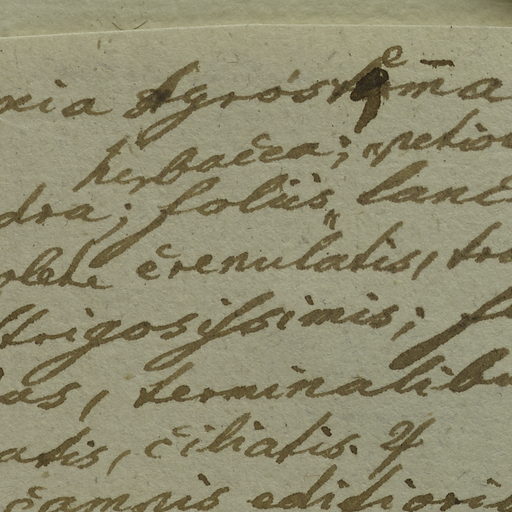 xia Agrosthema
herbacea; petiol
dra; foliis lanc
olete crenulatis, tra
strigosissimis; f
ias, terminalibu
atis, ciliatis. ♃
campis editiori